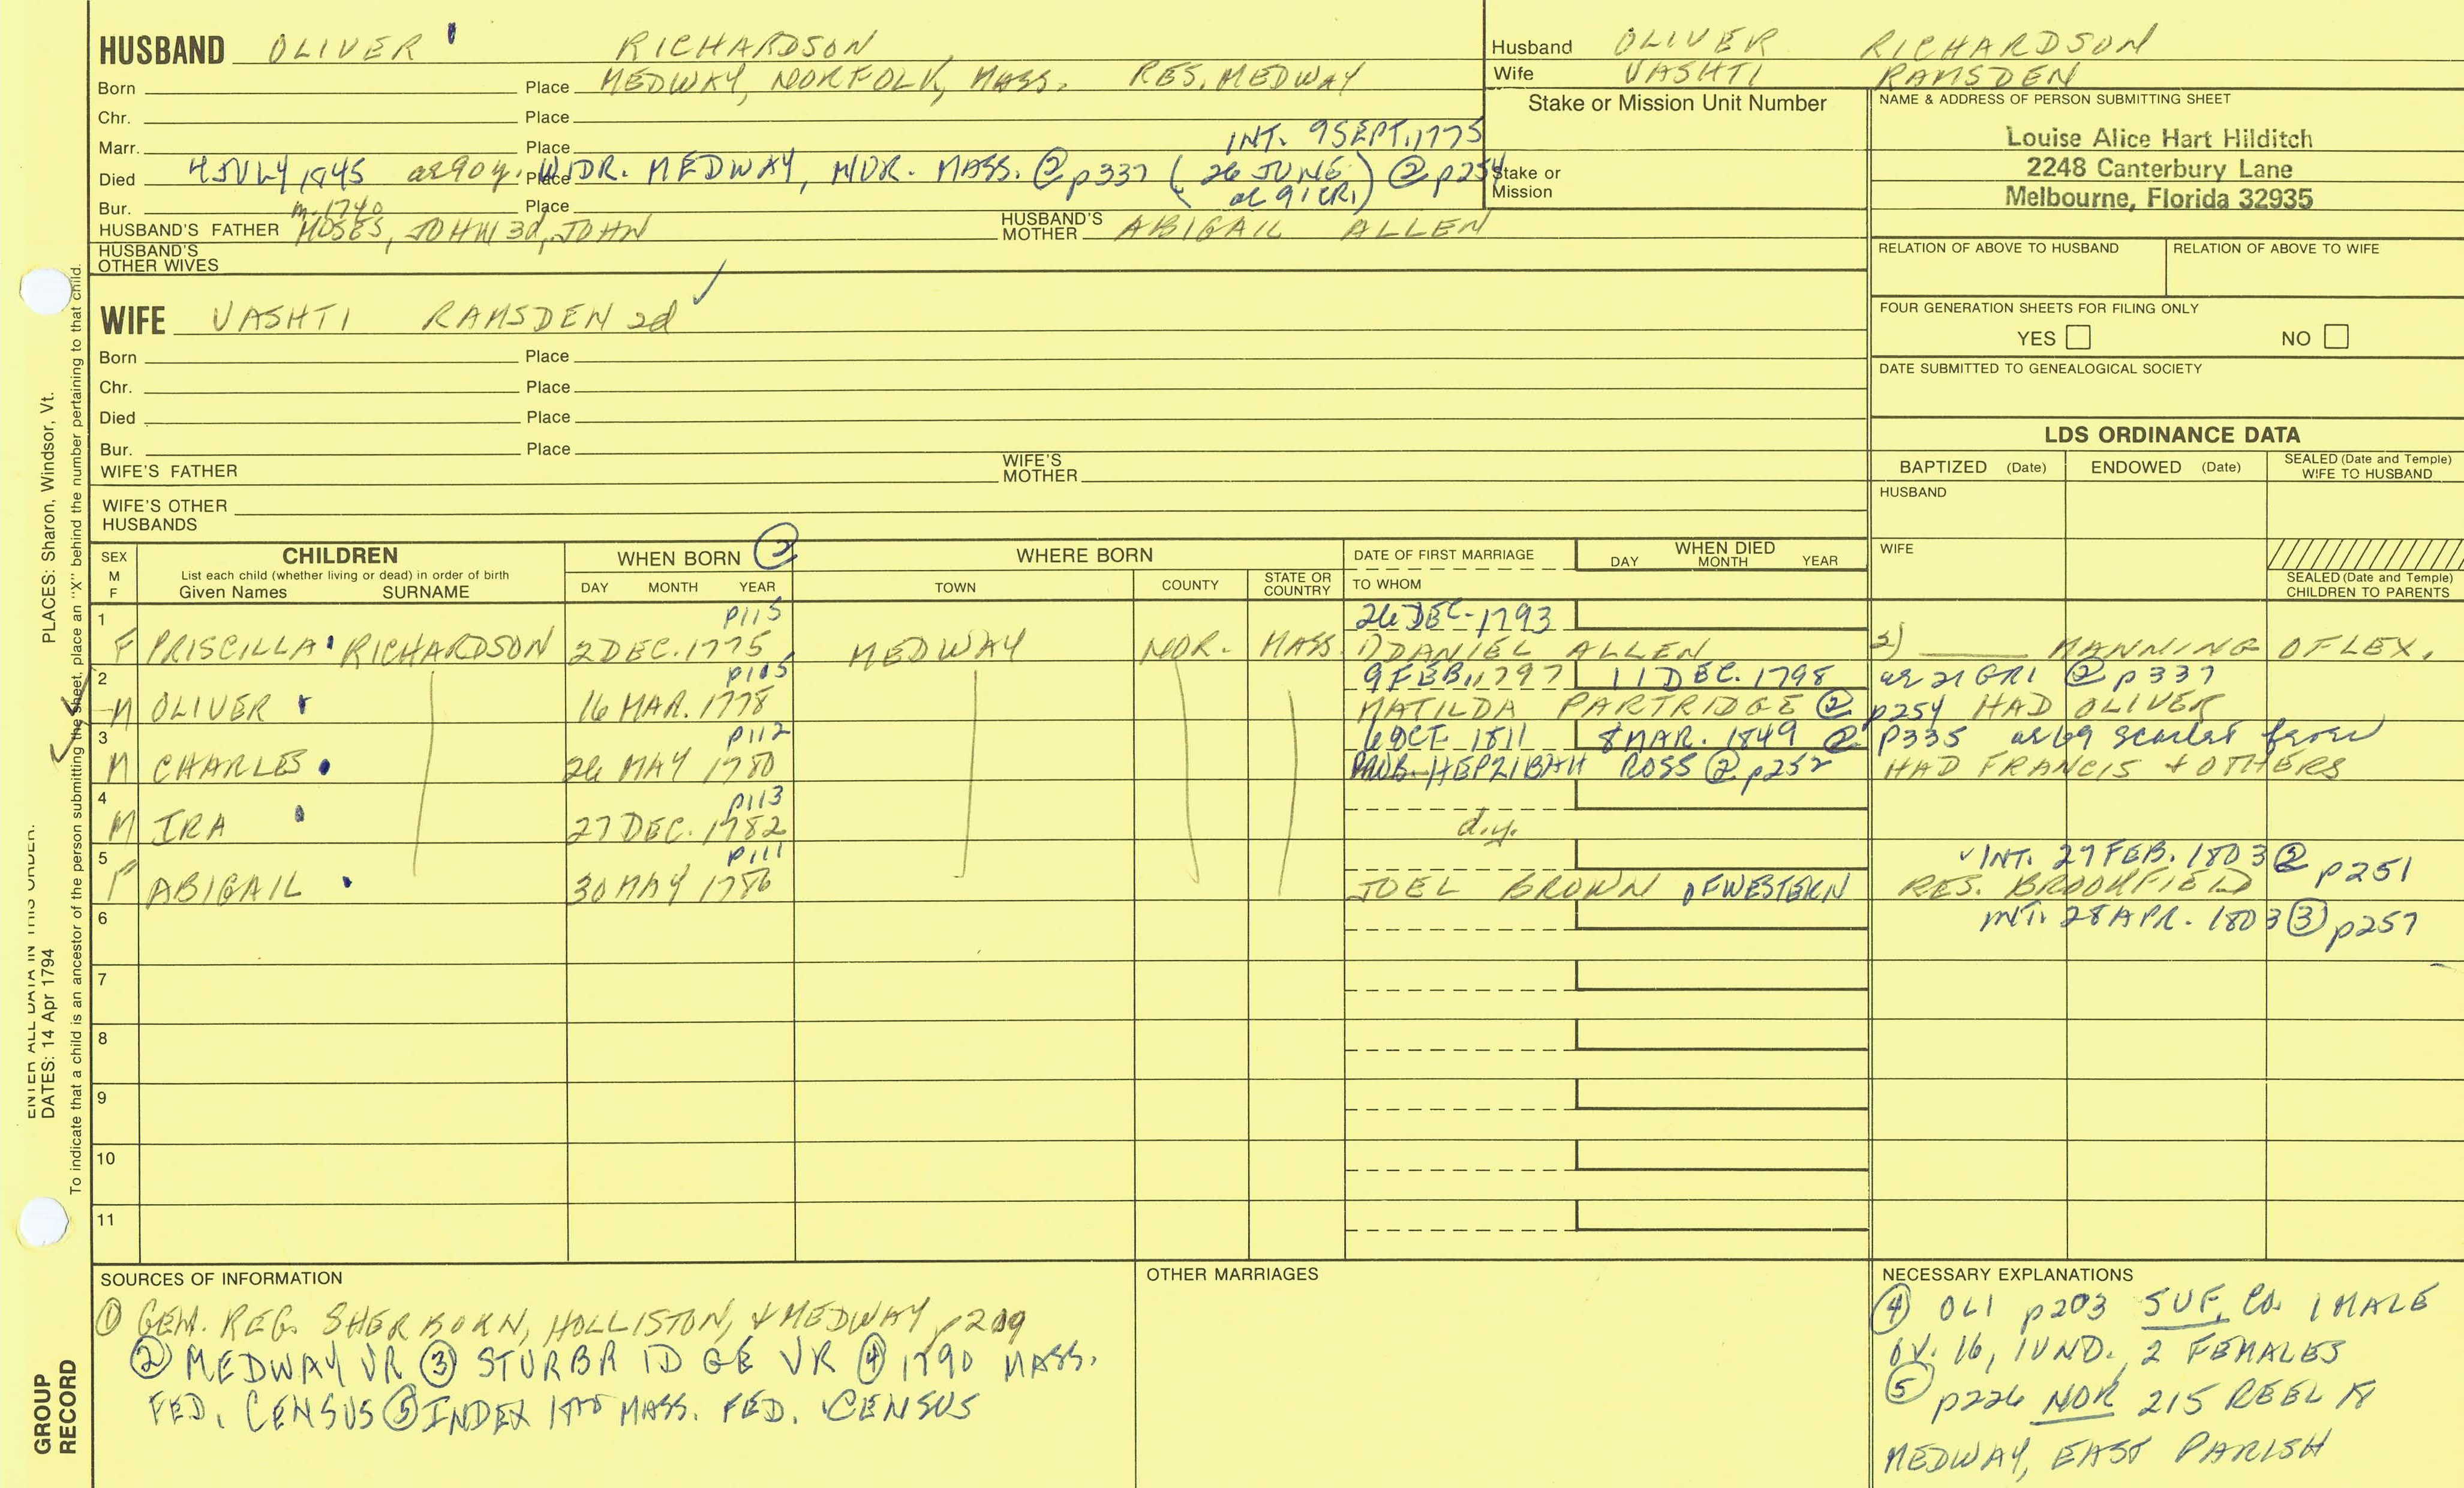 HUSBAND OLIVER RICHARDSON
Born Place MEDWAY, NORFOLK, MASS. RES. MEDWAY
Chr. Place
Marr. Place INT. 9 SEPT. 1775
Died 4 JULY 1845 ae 90 y. Place WIDR. MEDWAY, NOR. MASS. ② p337 (26 JUNE ae 91 CR1) ② p254
Bur. Place
m. 1740
HUSBAND'S FATHER MOSES, JOHN 3d, JOHN HUSBAND'S MOTHER ABIGAIL ALLEN
HUSBAND'S OTHER WIVES
WIFE VASHTI RAMSDEN 2d
Born Place
Chr. Place
Died Place
Bur. Place
WIFE'S FATHER WIFE'S MOTHER
WIFE'S OTHER HUSBANDS
Husband OLIVER RICHARDSON
Wife VASHTI RAMSDEN
Stake or Mission Unit Number
Stake or Mission
NAME & ADDRESS OF PERSON SUBMITTING SHEET
Louise Alice Hart Hilditch
2248 Canterbury Lane
Melbourne, Florida 32935
RELATION OF ABOVE TO HUSBAND RELATION OF ABOVE TO WIFE
FOUR GENERATION SHEETS FOR FILING ONLY
YES NO
DATE SUBMITTED TO GENEALOGICAL SOCIETY
LDS ORDINANCE DATA
BAPTIZED (Date) ENDOWED (Date) SEALED (Date and Temple) WIFE TO HUSBAND
HUSBAND
WIFE
SEALED (Date and Temple) CHILDREN TO PARENTS
SEX M F CHILDREN WHEN BORN ② WHERE BORN DATE OF FIRST MARRIAGE WHEN DIED
List each child (whether living or dead) in order of birth
Given Names SURNAME DAY MONTH YEAR TOWN COUNTY STATE OR COUNTRY TO WHOM DAY MONTH YEAR
1 p115 26 DEC. 1793
F PRISCILLA RICHARDSON 2 DEC. 1775 MEDWAY NOR. MASS. 1) DANIEL ALLEN 2) MANNING OF LEX.
2 p115 9 FEB. 1797 11 DEC. 1798 ae 21 GR1 ② p337
M OLIVER 16 MAR. 1778 MATILDA PARTRIDGE ② p254 HAD OLIVER
3 p112 6 OCT. 1811 8 MAR. 1849 ② p335 ae 69 scarlet fever
M CHARLES 26 MAY 1780 PROB. HEPZIBAH ROSS ② p252 HAD FRANCIS + OTHERS
4 p113
M IRA 27 DEC. 1782 d.y.
5 p111 INT. 27 FEB. 1803 ② p251
F ABIGAIL 30 MAY 1786 JOEL BROWN OF WESTERN RES. BROOKFIELD
6 INT. 28 APR. 1803 ③ p257
7
8
9
10
11
SOURCES OF INFORMATION
① GEN. REG. SHERBORN, HOLLISTON, + MEDWAY p209
② MEDWAY VR ③ STURBRIDGE VR ④ 1790 MASS.
FED. CENSUS ⑤ INDEX 1800 MASS. FED. CENSUS
OTHER MARRIAGES
NECESSARY EXPLANATIONS
④ OLI p203 SUF. CO. 1 MALE
OV. 16, 1 UND., 2 FEMALES
⑤ p226 NOR 215 REEL 18
MEDWAY, EAST PARISH
PLACES: Sharon, Windsor, Vt.
To indicate that a child is an ancestor of the person submitting the sheet, place an "X" behind the number pertaining to that child.
ENTER ALL DATA IN THIS ORDER:
DATES: 14 Apr 1794
GROUP RECORD